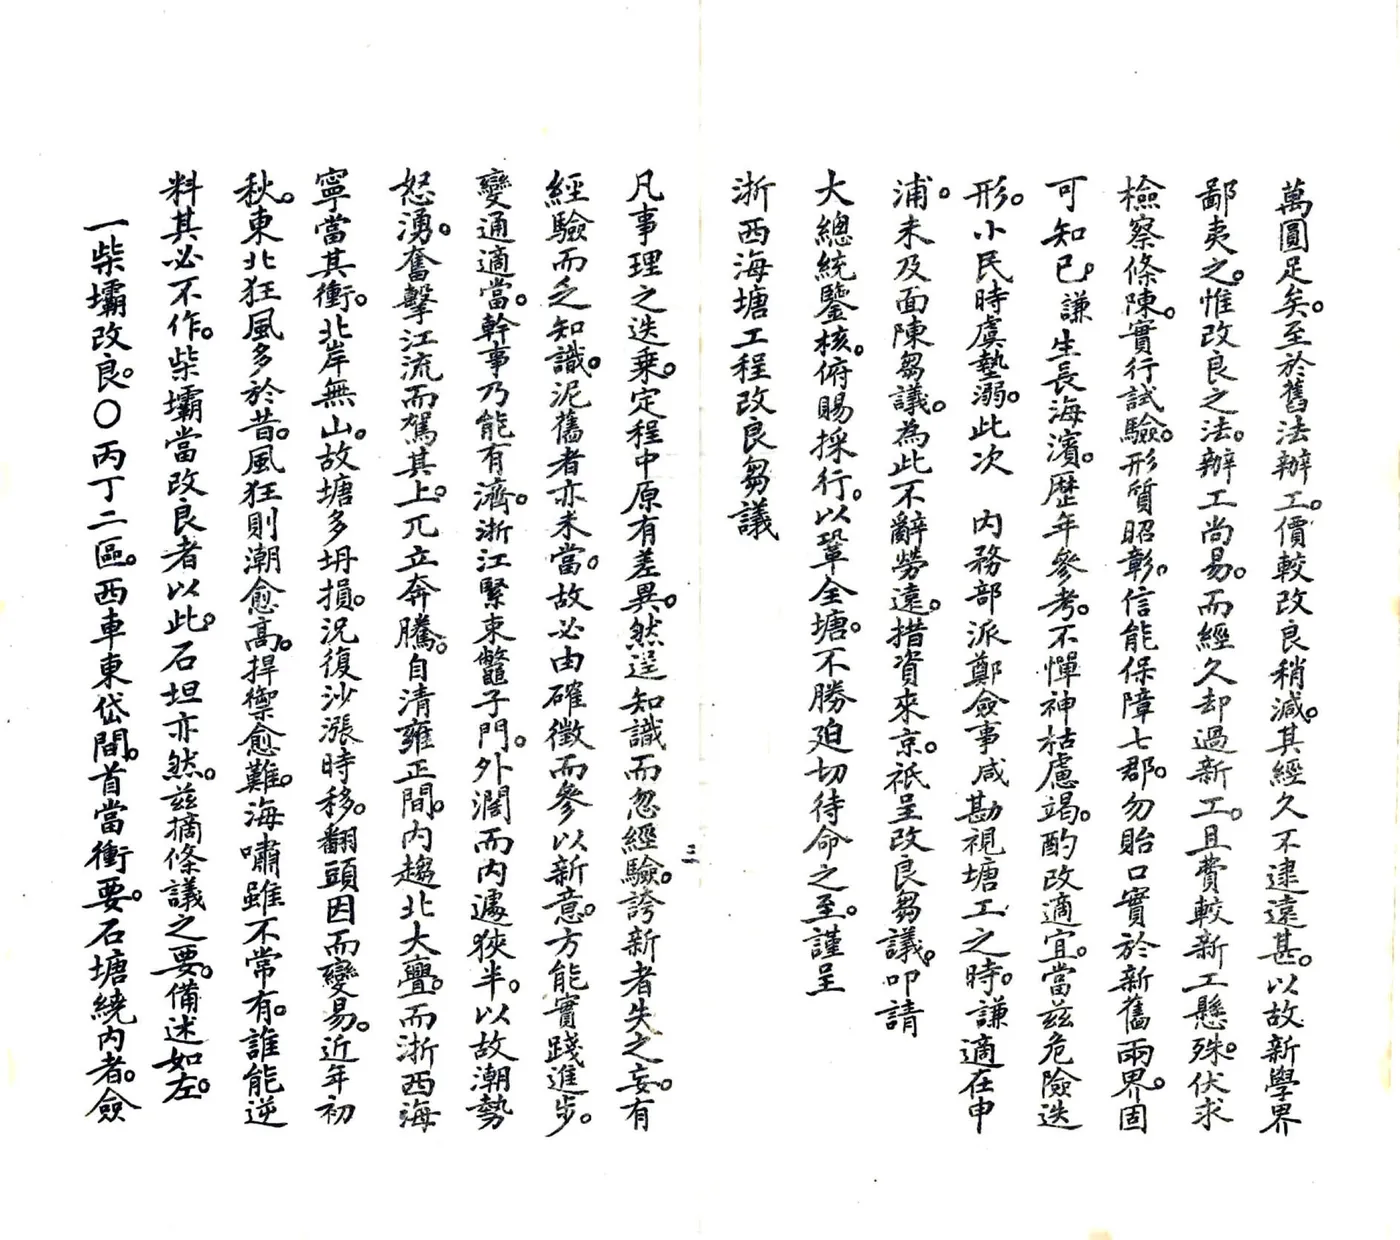 萬圓足矣。至於舊法辦工。價較改良稍減。其經久不逮遠甚。以故新學界
鄙夷之。惟改良之法。辦工尚易。而經久却過新工。且費較新工懸殊。伏求
檢察條陳。實行試驗。形質昭彰。信能保障七郡。勿貽口實於新舊兩界。固
可知已。謙生長海濱。歷年參考。不憚神枯慮竭。酌改適宜。當茲危險迭
形。小民時虞墊溺。此次 內務部派鄭僉事咸勘視塘工之時。謙適在申
浦。未及面陳芻議。為此不辭勞遠。措資來京。祇呈改良芻議。叩請
大總統鑒核。俯賜採行。以鞏全塘。不勝廹切待命之至。謹呈
浙西海塘工程改良芻議
三
凡事理之迭乘。定程中原有差異。然逞知識而忽經驗。誇新者失之妄。有
經驗而乏知識。泥舊者亦未當。故必由確徵而參以新意。方能實踐進步。
變通適當。幹事乃能有濟。浙江緊束鼈子門。外濶而內遽狹半。以故潮勢
怒湧。奮擊江流而駕其上。兀立奔騰。自清雍正間。內趨北大亹。而浙西海
寧當其衝。北岸無山。故塘多坍損。況復沙漲時移。翻頭因而變易。近年初
秋。東北狂風多於昔。風狂則潮愈高。捍禦愈難。海嘯雖不常有。誰能逆
料其必不作。柴壩當改良者以此。石坦亦然。茲摘條議之要。備述如左。
一柴壩改良。〇丙丁二區。西車東岱間。首當衝要。石塘繞內者。僉